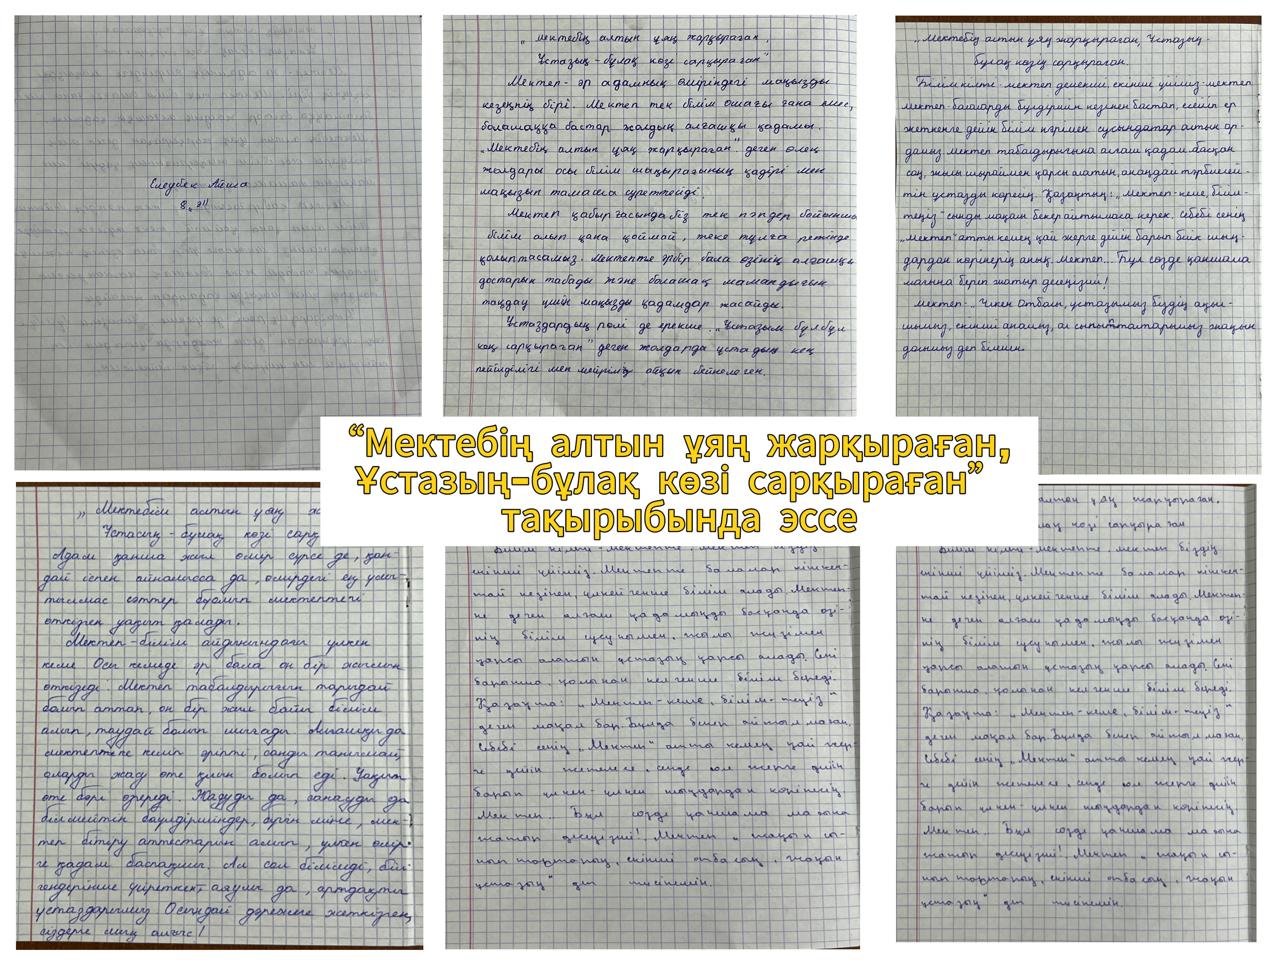 Сләубек Айша
8 "Ә"
„Мектебің алтын ұяң жарқыраған,
Ұстазың-бұлақ көзі сарқыраған"
Мектеп- әр адамның өміріндегі маңызды
кезеңнің бірі. Мектеп тек білім ошағы ғана емес,
болашаққа бастар жолдың алғашқы қадамы.
„Мектебің алтын ұяң жарқыраған" деген өлең
жолдары осы білім шаңырағының қадірі мен
маңызын тамаша суреттейді.
Мектеп қабырғасында біз тек пәндер бойынша
білім алып қана қоймай, жеке тұлға ретінде
қалыптасамыз. Мектепте әрбір бала өзінің алғашқы
достарын табады және болашақ мамандығын
таңдау үшін маңызды қадамдар жасайды.
Ұстаздардың рөлі де ерекше. „Ұстазым бұлбұл
көң сарқыраған" деген жолдарда ұстаздың кең
пейілділігі мен мейірімі айқын бейнеленген.
„Мектебің алтын ұяң жарқыраған, Ұстазың-
бұлақ көзің сарқыраған.
Білім кілті- мектеп демекші, екінші үйіміз-мектеп
мектеп-балаларды бүлдіршін кезінен бастап, есейіп ер
жеткенге дейін білім нәрімен сусындатар алтын ор-
дамыз. Мектеп табалдырығына алғаш қадам басқан
соң, жылы шыраймен қарсы алатын, анаңдай тәрбиелей-
тін ұстазды көресің. Қазақтың: „Мектеп-кеме, білім-
теңіз" сынды мақалы бекер айтылмаса керек. Себебі сенің
„мектеп" атты кемең қай жерге дейін барып биік шың-
дардан көрінерің анық. Мектеп... Бұл сөзде қаншама
мағына беріп жатыр десеңізші!
Мектеп- Үлкен отбасы, ұстазымыз біздің ақыл-
шымыз, екінші анамыз, ал сыныптастарымыз жақын
досымыз деп білемін.
“Мектебің алтын ұяң жарқыраған,
Ұстазың-бұлақ көзі сарқыраған”
тақырыбында эссе
„Мектебің алтын ұяң
Ұстазың- бұлақ көзі
Адам қанша жыл өмір сүрсе де, қан-
дай іспен айналысса да, өмірдегі ең ұмы-
тылмас сәттер болып мектептегі
өткізген уақыт қалады.
Мектеп-білім айдынындағы үлкен
кеме. Осы кемеде әр бала он бір жылын
өткізеді. Мектеп табалдырығын тарыдай
болып аттап, он бір жыл бойы білім
алып, таудай болып шығады. Алғашқыда
мектептеке келіп әріпті, санды танымай,
оларды жазу өте қиын болып еді. Уақыт
өте бәрі өзгереді. Жазуды да, санауды да
білмейтін бүлдіршіндер, бүгін міне, мек-
теп бітіру аттестатын алып, үлкен өмір-
ге қадам баспақшы. Ал сол білімді, біл-
гендерінше үйреткен аяулы да, ардақты
ұстаздарымыз. Осындай дәрежеге жеткізген,
сіздерге мың алғыс!
Білім кілті-мектепте, мектеп біздің
екінші үйіміз. Мектепте балалар кішкен-
тай кезінен, үлкейгенше білім алады. Мектеп-
ке деген алғаш қадамыңды басқанда өзі-
нің білім сусынымен, жылы жүзімен
қарсы алатын ұстазың қарсы алады. Сені
барынша, қолынан келгенше білім береді.
Қазақта: „Мектеп-кеме, білім-теңіз"
деген мақал бар. Бұлда бекер айтылмаған,
Себебі сенің „Мектеп" атты кемең қай жер-
ге дейін жетелесе, сенде сол жерге дейін
барып үлкен-үлкен шыңдардан көрінесің.
Мектеп.. Бұл сөзде қаншама мағына
жатыр десеңізші! Мектеп „ жақын сы-
екінші отбасың, жақын
ұстазың" деп түсінемін.
алтын ұяң жарқыраған,
көзі сарқыраған
Білім кілті-мектепте, мектеп біздің
екінші үйіміз. Мектепте балалар кішкен-
тай кезінен, үлкейгенше білім алады. Мектеп-
ке деген алғаш қадамыңды басқанда өзі-
нің білім сусынымен, жылы жүзімен
қарсы алатын ұстазың қарсы алады. Сені
барынша, қолынан келгенше білім береді.
Қазақта: „Мектеп-кеме, білім-теңіз"
деген мақал бар. Бұлда бекер айтылмаған,
Себебі сенің „Мектеп" атты кемең қай жер-
ге дейін жетелесе, сенде сол жерге дейін
барып үлкен-үлкен шыңдардан көрінесің.
Мектеп.. Бұл сөзде қаншама мағына
жатыр десеңізші! Мектеп „ жақын сы-
екінші отбасың, жақын
ұстазың" деп түсінемін.